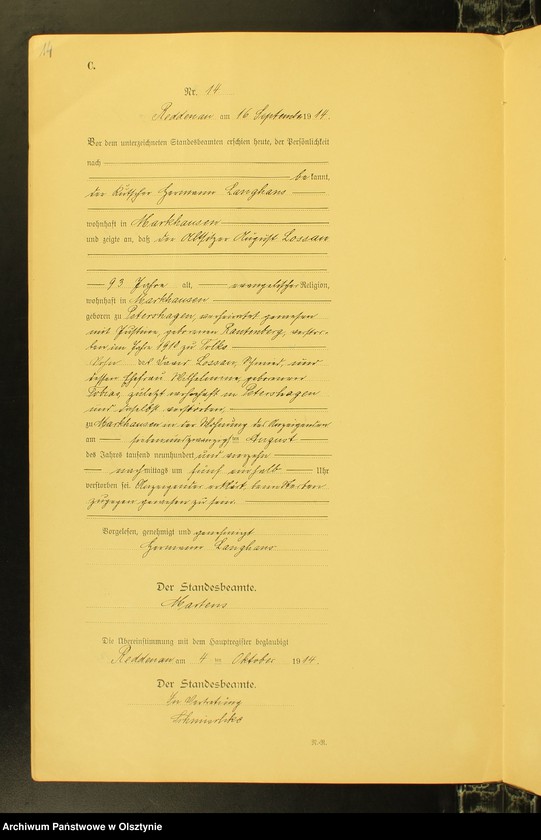 14
C.
Nr. 14
Reddenau am 16 September 1914.
Vor dem unterzeichneten Standesbeamten erschien heute, der Persönlichkeit
nach
be kannt,
der Kutscher Hermann Langhans
wohnhaft in Markhausen
und zeigte an, daß der Altsitzer August Lossau
93 Jahre alt, evangelischer Religion,
wohnhaft in Markhausen
geboren zu Petershagen, verheiratet gewesen
mit Justine, geborenen Rautenberg, verstor-
ben im Jahre 1910 zu Tolks
Sohn des Lossau, Schmied, und
dessen Ehefrau Wilhelmine, geborener
Tobias, zuletzt wohnhaft in Petershagen
und daselbst verstorben,
zu Markhausen in der Wohnung des Anzeigenden
am siebenundzwanzigsten August
des Jahres tausend neunhundert und vierzehn
nachmittags um fünf einhalb Uhr
verstorben sei. Anzeigender erklärt, beim Sterben
zugegen gewesen zu sein.
Vorgelesen, genehmigt und genehmigt
Hermann Langhans
Der Standesbeamte.
Martens
Die Übereinstimmung mit dem Hauptregister beglaubigt
Reddenau am 4 ten Oktober 1914.
Der Standesbeamte.
In Vertretung
Archiwum Państwowe w Olsztynie